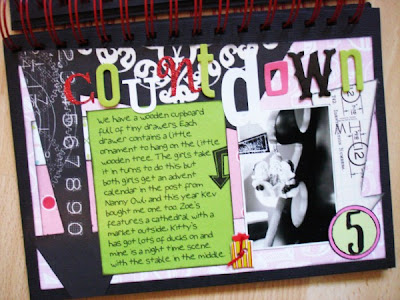 countdown
We have a wooden cupboard
full of tiny drawers. Each
drawer contains a little
ornament to hang on the little
wooden tree. The girls take
it in turns to do this but
both girls get an advent
calendar in the post from
Nanny Owl and this year Kev
bought me one too. Zoe's
features a cathedral with a
market outside. Kitty's
has got lots of ducks on and
mine is a night time scene
with the stable in the middle.
5
567890